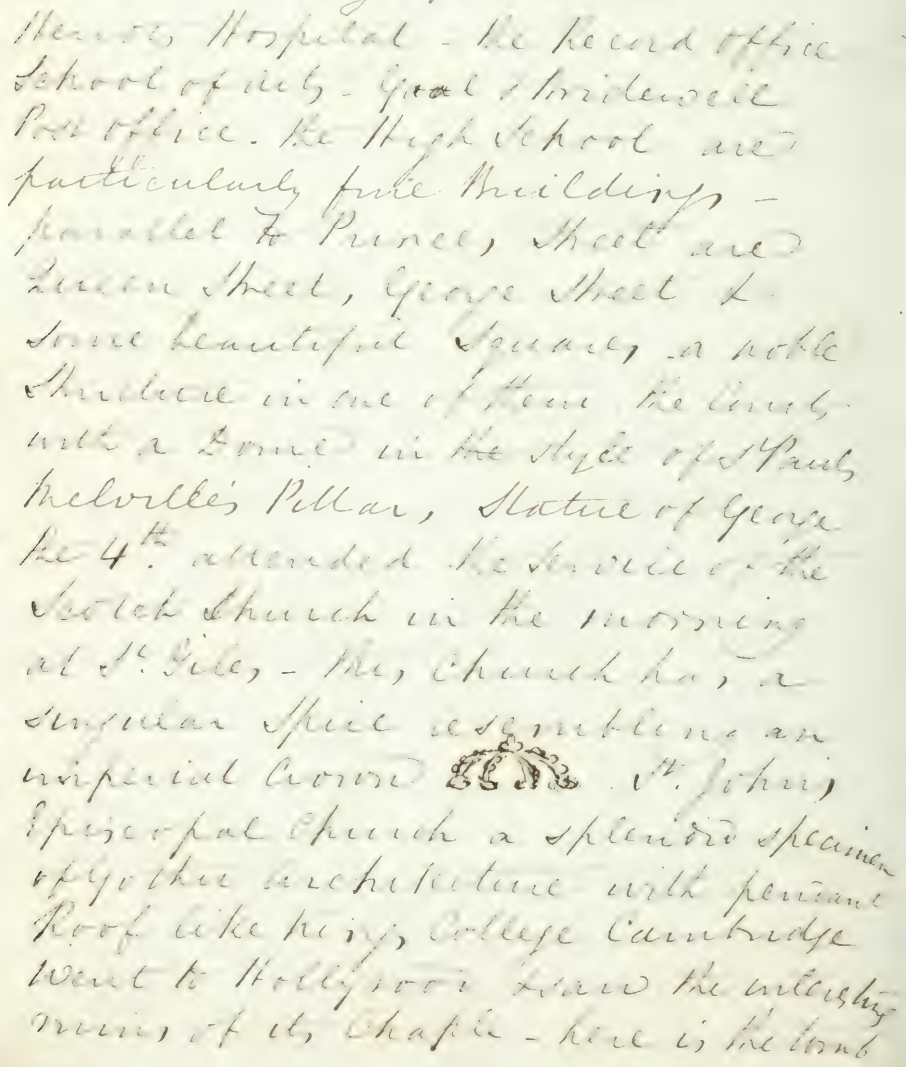 Heriots Hospital - the Record office
School of Arts - Goal & Bridewell
Post office. the High School are
particularly fine Buildings -
parallel to Princes Street are
Queen Street, George Street &
some beautiful Squares, a noble
Structure in one of them the
with a Dome in the style of St Pauls
Melville's Pillar, Statue of George
the 4th. attended the service of the
Scotch Church in the morning
at St. Giles, - this Church has a
singular Spire resembling an
imperial Crown St. Johns
Episcopal Church a splendid specimen
of Gothic architecture with pendant
Roof like Kings College Cambridge
Went to Hollyrood & saw the interesting
ruins of its Chaple - here is the tomb